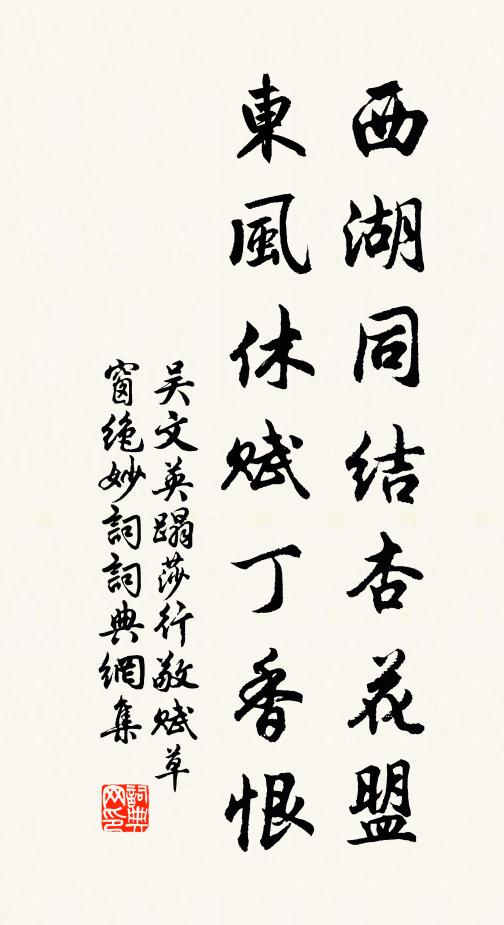 西湖同結杏花盟
東風休賦丁香恨
吴文英蹋莎行敬賦草
窗绝妙詞詞典網集
詞典
网印